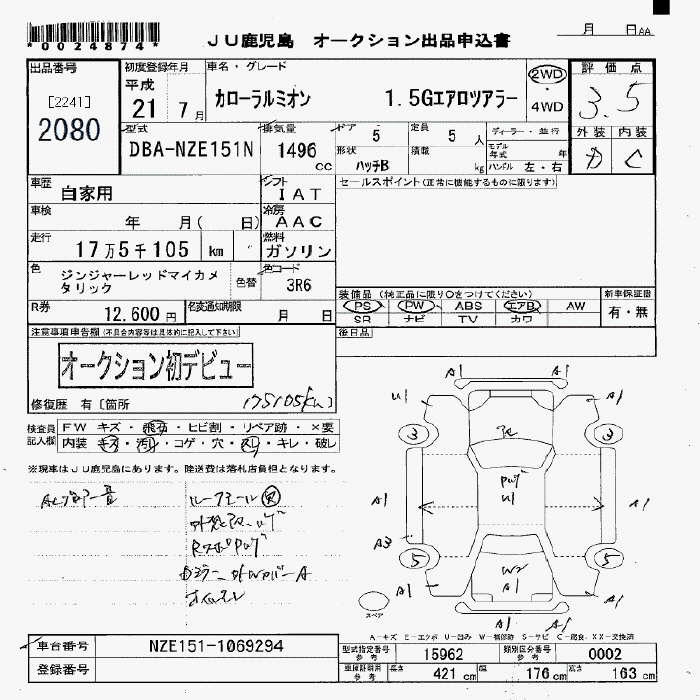 *0024874*
JU鹿児島 オークション出品申込書
月 日AA
出品番号
[2241]
2080
初度登録年月
平成
21 7月
車名・グレード
カローラルミオン 1.5Gエアロツアラー
2WD
・
4WD
評価点
3.5
外装 内装
D C
型式
DBA-NZE151N
排気量
1496
cc
ドア 5
形状 ハッチB
定員 5 人
積載 kg
ディーラー・並行
モデル年式 年
ハンドル 左・右
車歴 自家用
シフト IAT
セールスポイント(正常に機能するものに限ります)
車検 年 月( 日)
冷房 AAC
走行 17万5千105 km
燃料 ガソリン
色 ジンジャーレッドマイカメ
タリック
色替
色コード 3R6
装備品(純正品に限り○をつけてください)
PS PW ABS エアB AW
SR ナビ TV カワ
新車保証書
有・無
R券 12,600円
名変通知期限 月 日
後日品
注意事項申告欄(不具合内容等は具体的に記入して下さい)
オークション初デビュー
修復歴 有[箇所
175105km]
検査員
記入欄
FW キズ・飛石・ヒビ割・リペア跡・×要
内装 キズ・汚れ・コゲ・穴・スレ・キレ・破レ
※現車はJU鹿児島にあります。陸送費は落札店負担となります。
A1 A1
U1 A1
3 3
A1 A1
A3
5 5
W2
A1
A1 A1
A1 A1
スペア
A-キズ E-エクボ U-凹み W-補修跡 S-サビ C-腐食、XX-交換済
車台番号 NZE151-1069294
登録番号
型式指定番号
参考 15962
類別区分番号
参考 0002
車検証明用
参考
長さ 421 cm
幅 176 cm
高さ 163 cm